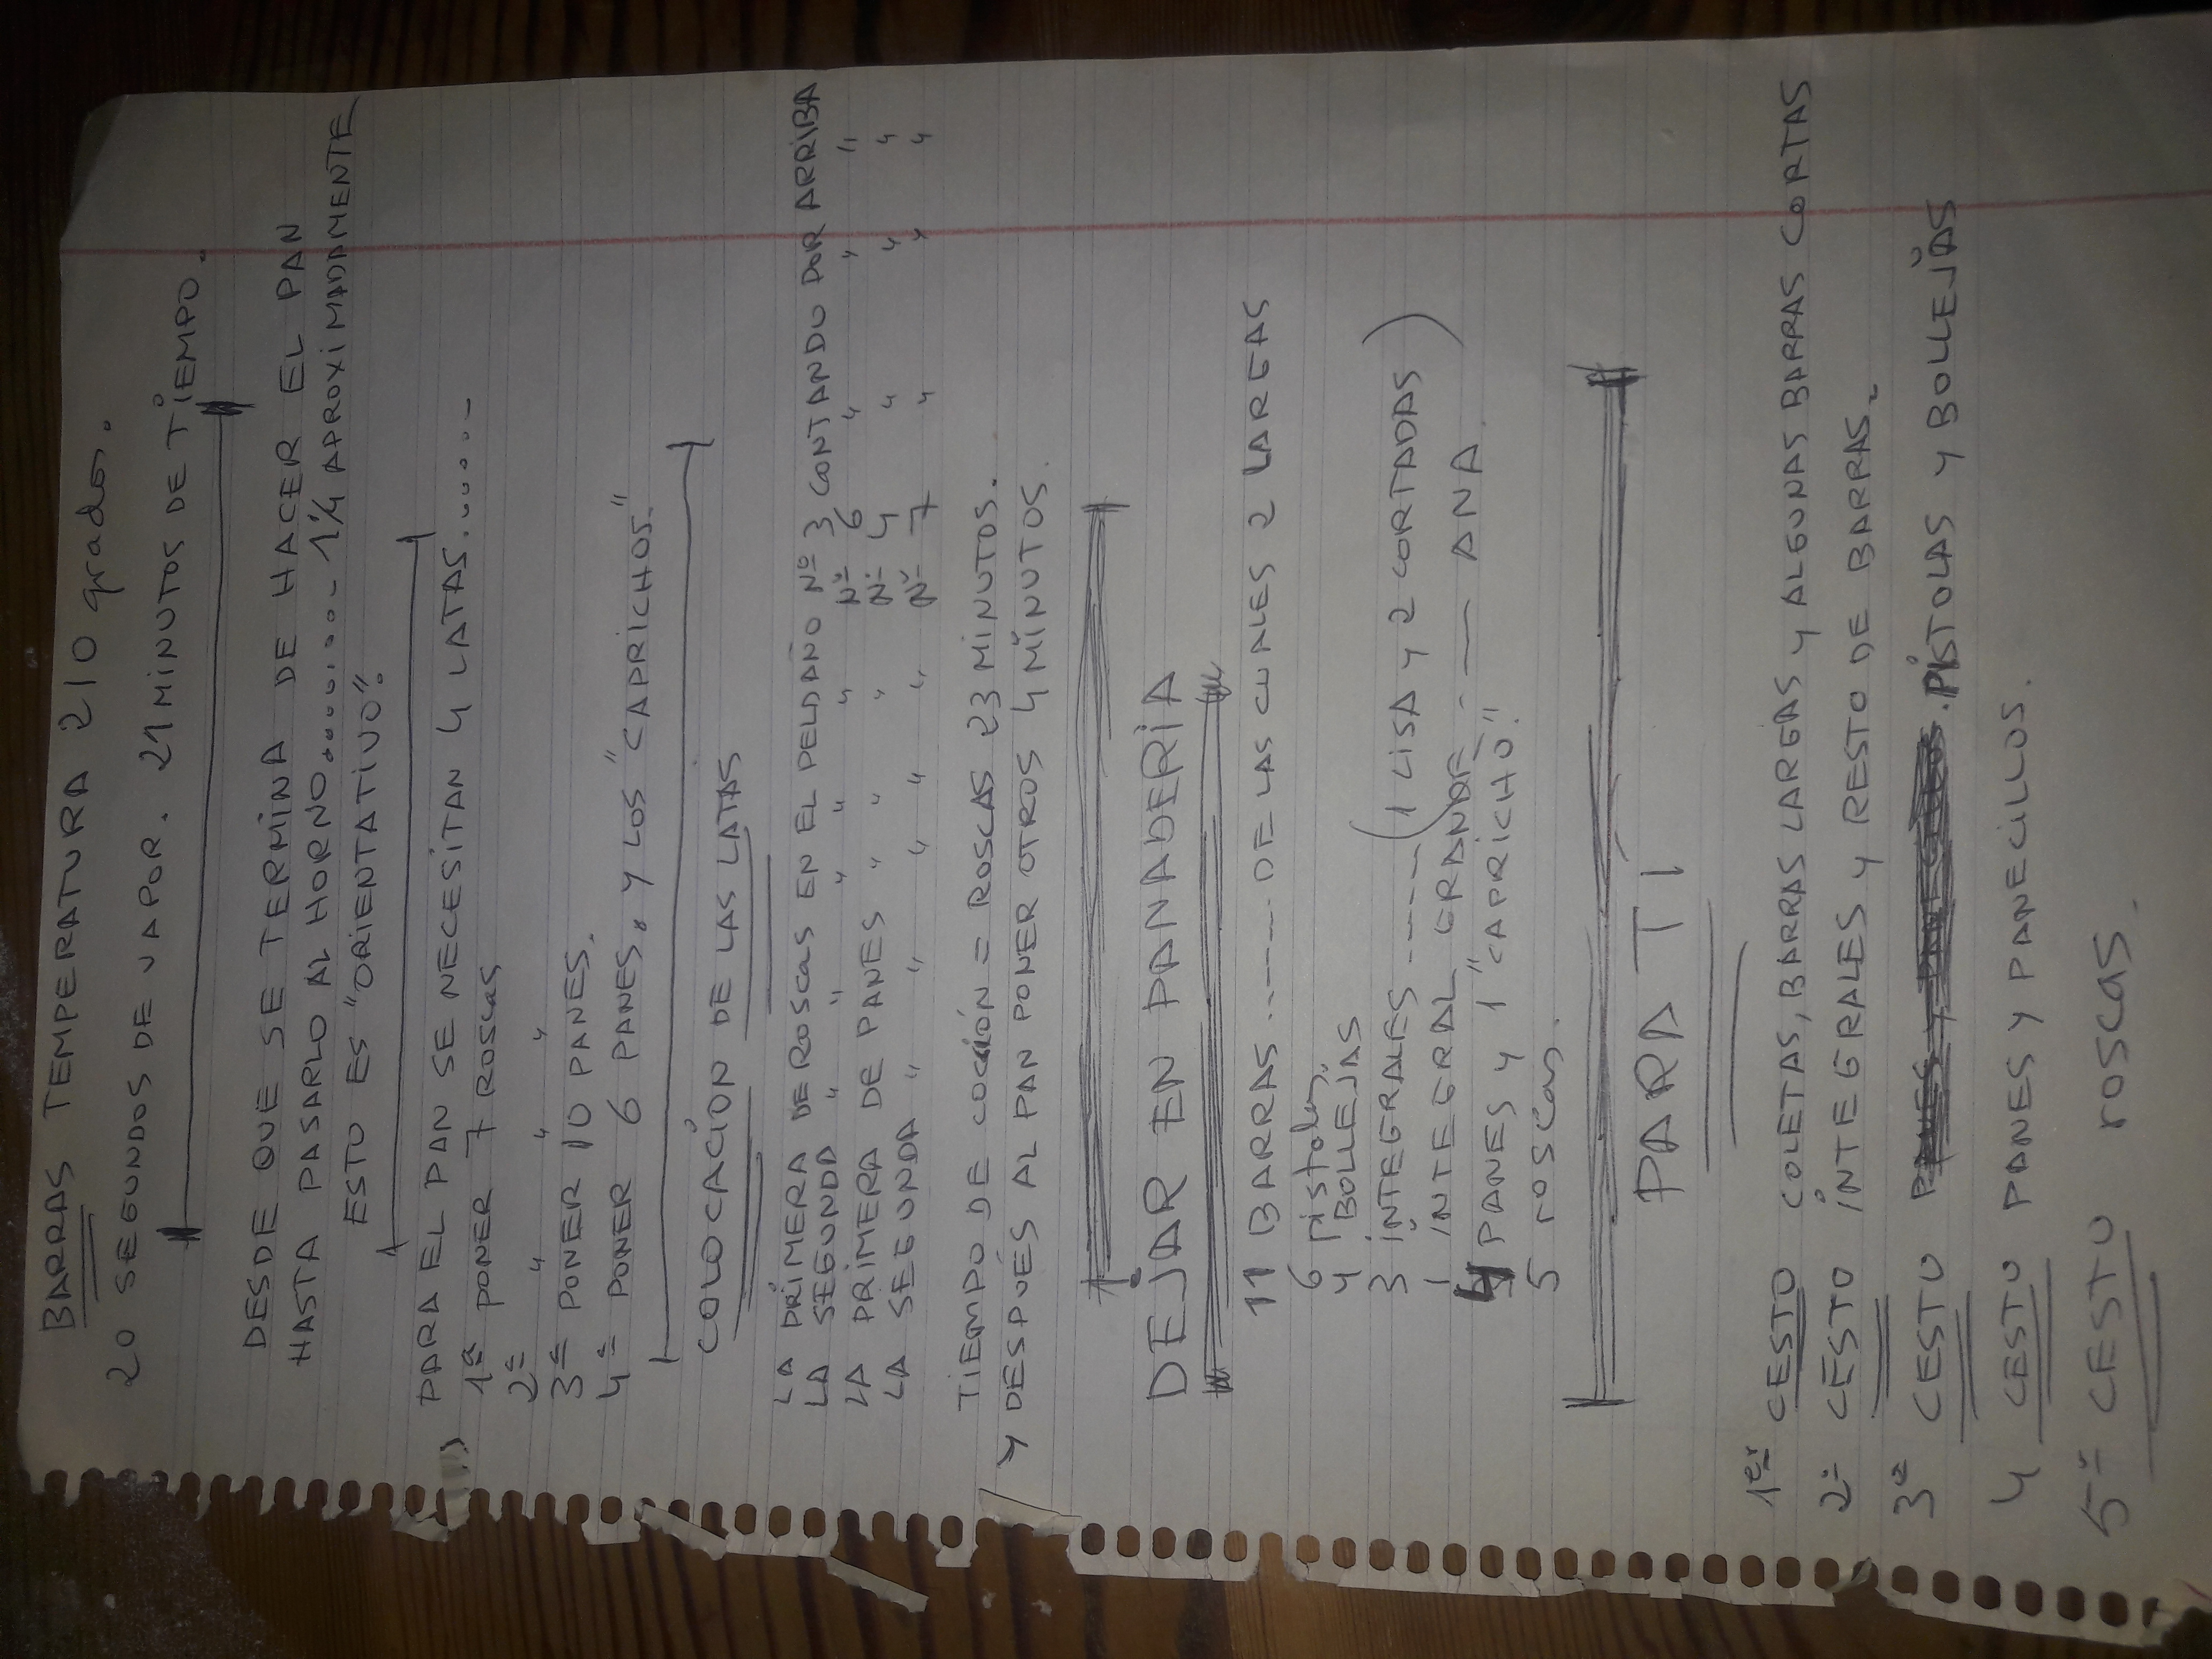 BARRAS TEMPERATURA 210 grados.
20 SEGUNDOS DE VAPOR. 21 MINUTOS DE TIEMPO.
DESDE QUE SE TERMINA DE HACER EL PAN
HASTA PASARLO AL HORNO......... 1¼ APROXIMADAMENTE
ESTO ES "ORIENTATIVO".
PARA EL PAN SE NECESITAN 4 LATAS.......-
1ª PONER 7 ROSCAS
2ª " " "
3ª PONER 10 PANES.
4ª PONER 6 PANES, Y LOS "CAPRICHOS."
COLOCACIÓN DE LAS LATAS
LA PRIMERA DE ROSCAS EN EL PELDAÑO Nº 3 CONTANDO POR ARRIBA
LA SEGUNDA " " " " " Nº 6 " " "
LA PRIMERA DE PANES " " " " Nº 4 " " "
LA SEGUNDA " " " " " Nº 7 " " "
TIEMPO DE COCCIÓN = ROSCAS 23 MINUTOS.
Y DESPUÉS AL PAN PONER OTROS 4 MINUTOS.
DEJAR EN PANADERIA
11 BARRAS...---- DE LAS CUALES 2 LARGAS
6 pistolas.
4 BOLLEJAS
3 INTEGRALES ----- (1 LISA Y 2 CORTADAS)
1 INTEGRAL GRANDE - - — ANA.
4 PANES Y 1 "CAPRICHO".
5 roscas.
PARA TI
1er CESTO COLETAS, BARRAS LARGAS Y ALGUNAS BARRAS CORTAS
2º CESTO INTEGRALES Y RESTO DE BARRAS.
3º CESTO PISTOLAS Y BOLLEJAS
4 CESTO PANES Y PANECILLOS.
5º CESTO roscas.